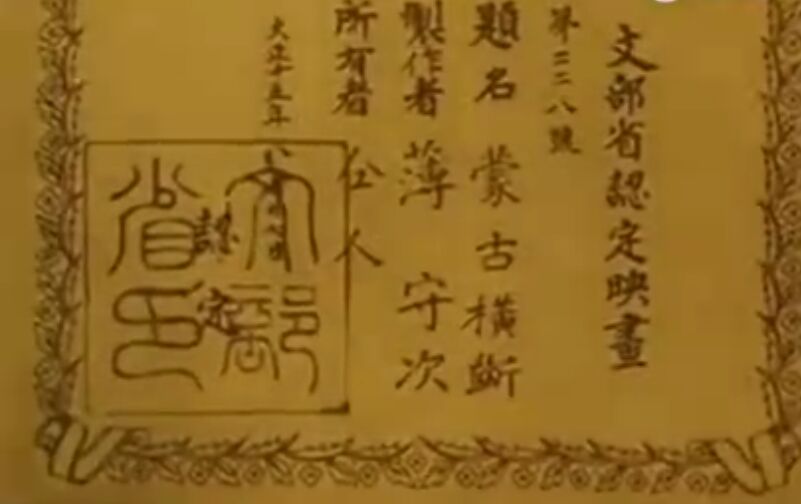 文部省認定映畫
第二二八號
題名 蒙古横斷
製作者 薄守次
所有者 仝人
大正十五年
認定
文部省印